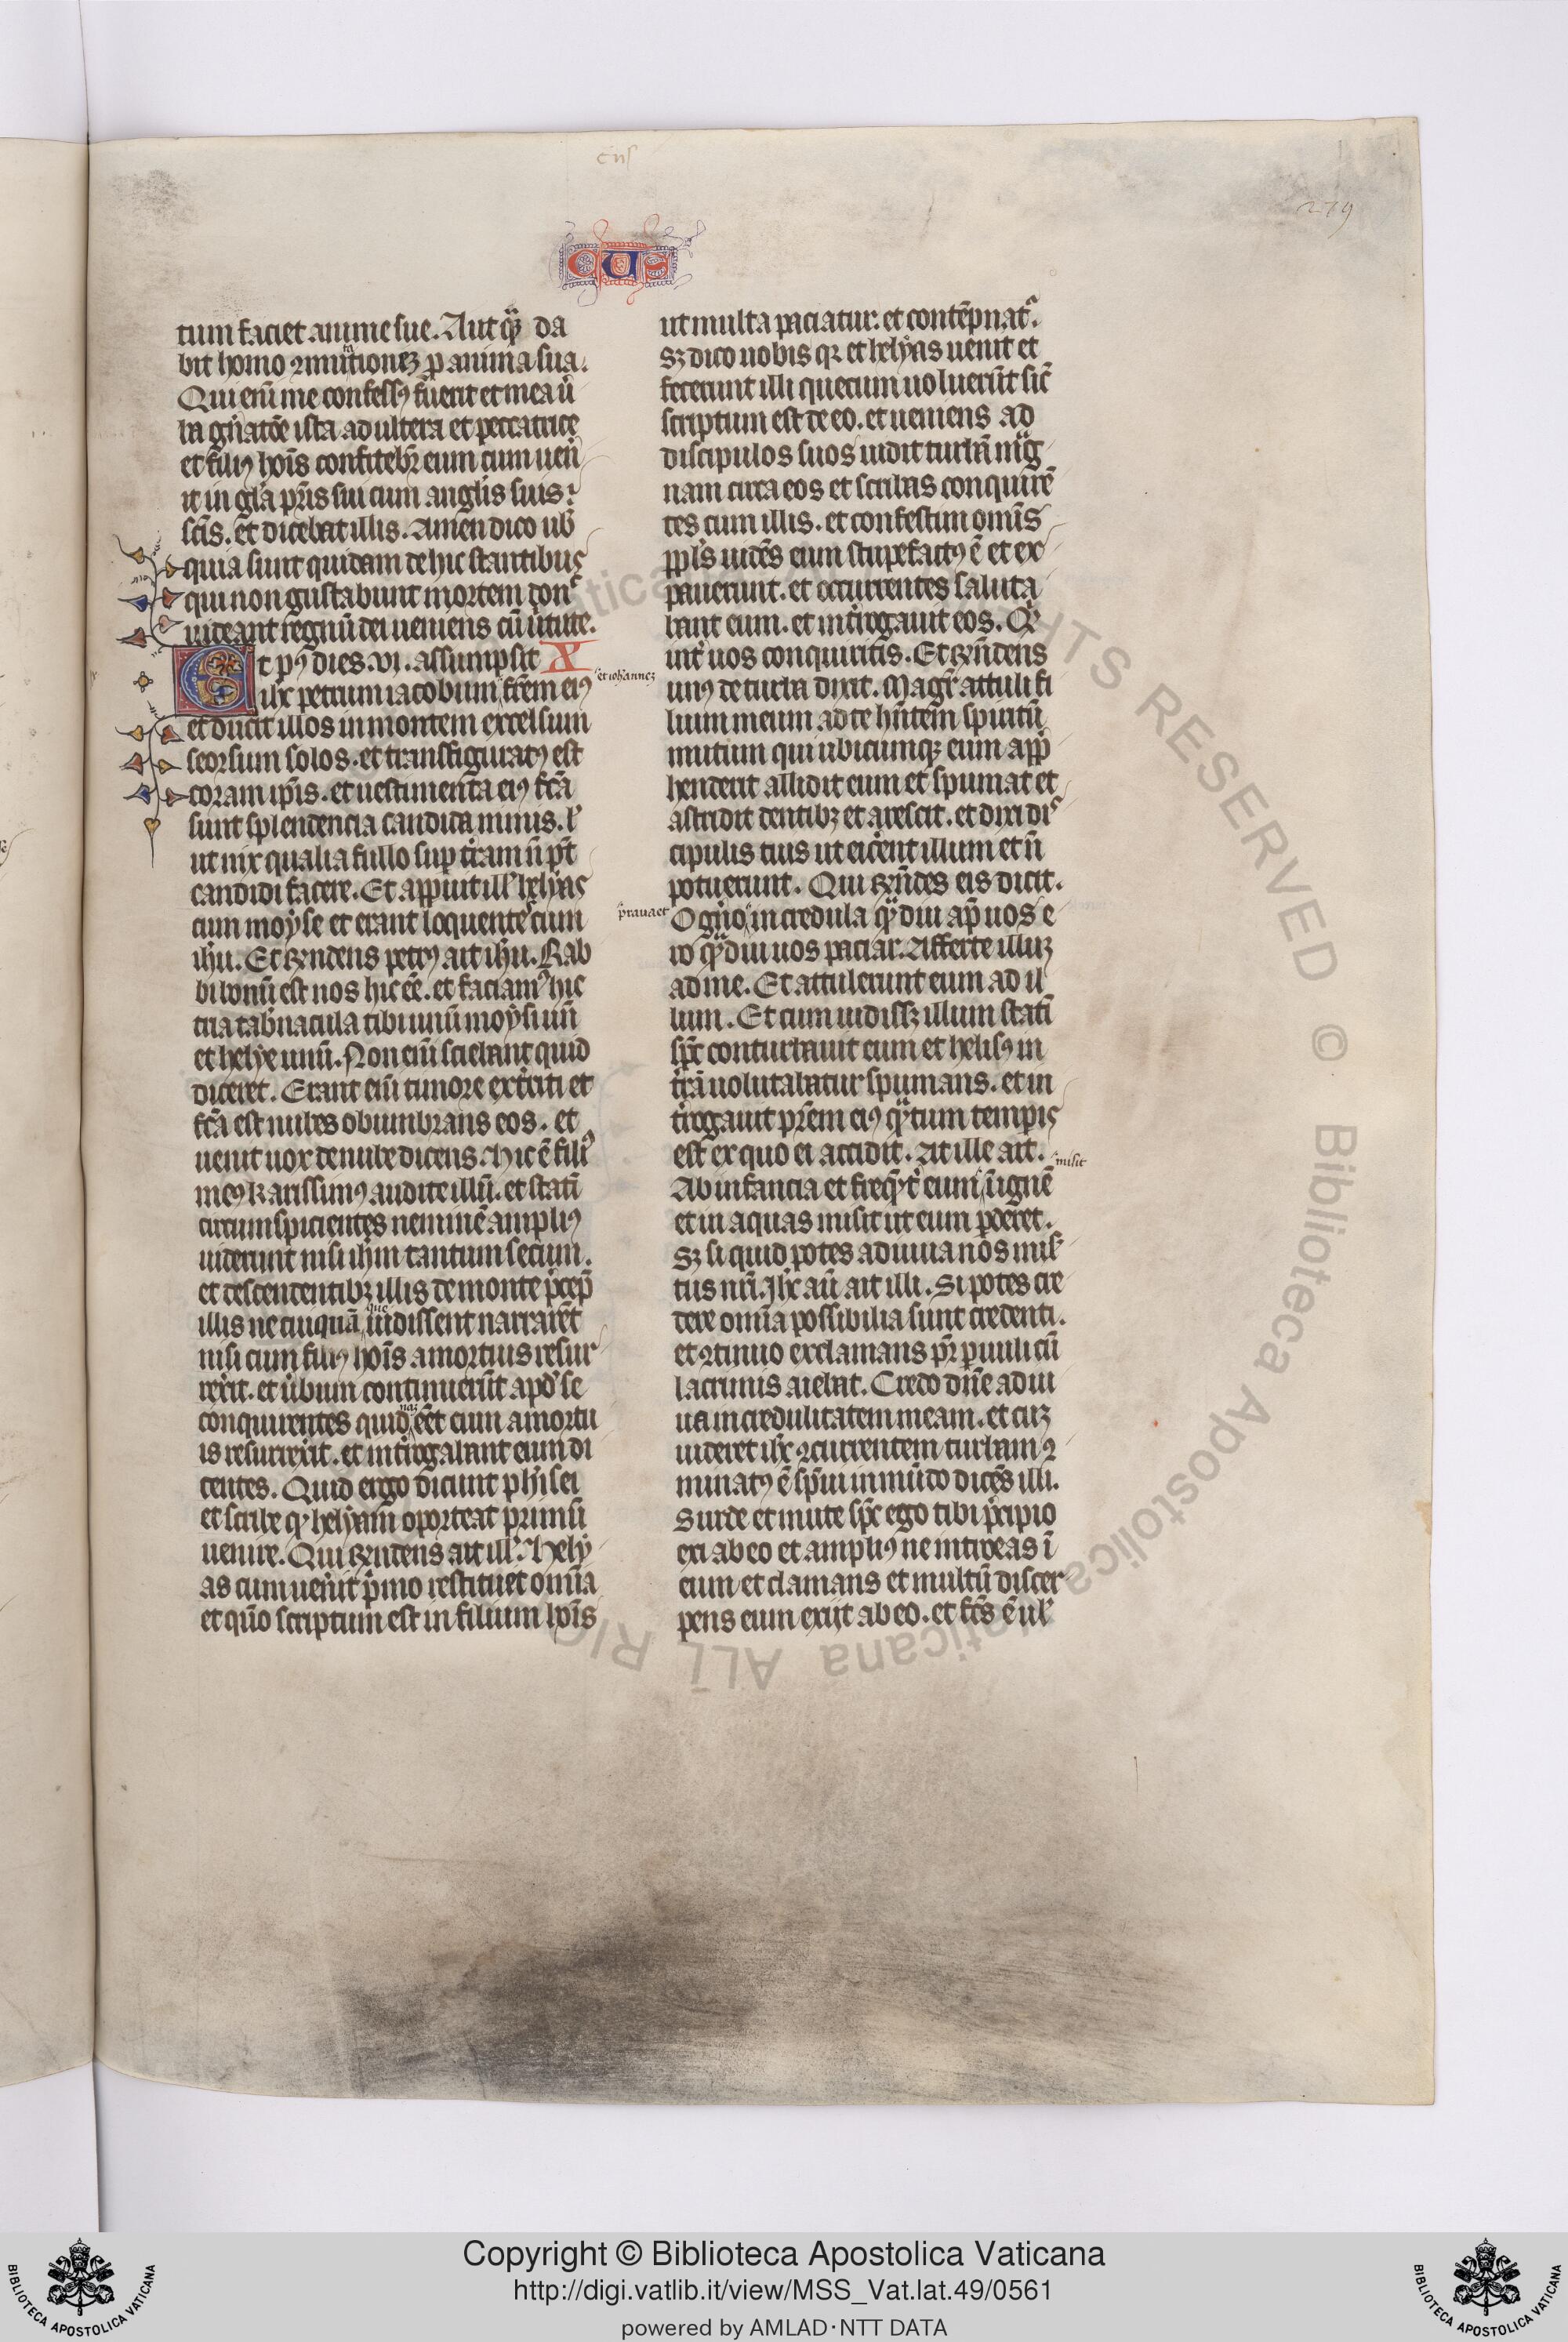 cus
279
CUS
tum faciet anime sue. Aut qͥd da
bit homo ꝯmutationeꝫ ꝓ anima sua.
Qui enī me confessꝰ fuerit et mea ú̄
in gn̄atōe ista adultera et peccatrice
et filiꝰ hoīs confitebr̄ eum cum uen̄
it in gl̄a pr̄is sui cum angl̄is suis
scīs. et dicebat illis. Amen dico uob̄
quia sunt quidam de hic stantibus
qui non gustabunt mortem donͨ
uideant regnū dei ueniens cū ûtute.
Et pꝰ dies .vi. assumpsit X
ih̄c petrum iacobum fr̄em eiꝰ
et iohanneꝫ
et ducit illos in montem excelsum
seorsum solos. et transfiguratꝰ est
coram ip̄is. et uestimenta eiꝰ fc̄a
sunt splendencia candida nimis. ł
ut nix qualia fullo suꝑ tr̄am n̄ pōt
candidi facere. Et apparuit illˢ helyas
cum moyse et erant loquentes cum
ih̄u. Et rn̄dens petrꝰ ait ih̄u. Rab
bi bonū est nos hic eē. et faciamꝰ hic
tria tab̄nacula tibi unū moysi un̄
et helye unū. Non enī sciebant quid
diceret. Erant enī timore ext̄riti et
fc̄a est nubes obumbrans eos. et
uenit uox de nube dicens. Hic ē filiꝰ
meꝰ karissimꝰ audite illū. et statī
circumspicientes neminē ampliꝰ
uiderunt nisi ih̄m tantum secum.
et descendentibꝫ illis de monte p̄cep̄
illis ne cuiquā que uidissent narrarēt
nisi cum filiꝰ hoīs a mortuis resur
rexit. et ûbum continuerūt apd̄ se
conquirentes quid eēt cum a mortu
is resurrexit. et int̄rogabant eum di
centes. Quid ergo dicunt ph̄isei
et scribe qꝫ helyam oporteat primū
uenire. Qui rn̄dens ait illˢ. Hely
as cum uen̄it p̄mo restituet omīa
et quō scriptum est in filium hoīs
ut multa paciatur. et contēpnatᷣ.
Sꝫ dico uobis qꝛ et helyas uenit et
fecerunt illi quecum uoluerūt sic̄
scriptum est de eo. et ueniens ad
discipulos suos uidit turbā mͣg
nam circa eos et scribas conquirē
tes cum illis. et confestim omīs
ppl̄s uidēs eum stupefactꝰ ē et ex
pauerunt. et occurrentes saluta
bant eum. et int̄rogauit eos. Qͥd
int̄ uos conquiritis. Et rn̄dens
unꝰ de turba dixit. Magr̄ attuli fi
lium meum ad te hn̄tem spiritū
mutum qui ubicumqꝫ eum app̄
henderit allidit eum et spumat et
astridit dentibꝫ et arescit. et dixi disˢ
cipulis tuis ut eicerent illum et n̄
potuerunt. Qui rn̄dēs eis dicit.
praua et
O gn̄o incredula qͣmdiu ap̄ uos e
ro qͣmdiu uos paciar. Afferte illuꝫ
ad me. Et attulerunt eum ad il
lum. Et cum uidissꝫ illum statī
spc̄ conturbauit eum et helisꝰ in
tr̄a uolutabatur spumans. et in
t̄rogauit pr̄em eiꝰ qͣntum tempis
est ex quo ei accidit. At ille ait.
misit
Ab infancia et freqͣ̄t̄ eum ī ignē
et in aquas misit ut eum ꝑderet.
Sꝫ si quid potes adiuua nos misˢ
tus nr̄i. Ih̄c aū ait illi. Si potes cre
dere omīa possibilia sunt credenti.
et ꝯtinuo exclamans pr̄ puuli cū
lacrimis aiebat. Credo dn̄e adiu
ua incredulitatem meam. et cuꝫ
uideret ih̄c ꝯcurrentem turbam ꝯ
minatꝰ ē sp̄ui inmūdo dicēs illi.
Surde et mute spc̄ ego tibi p̄cipio
exi ab eo et ampliꝰ ne introeas ī
eum et clamans et multū discer
pens eum exijt ab eo. et fc̄s ē uelˢ
© Biblioteca Apostolica Vaticana ALL RIGHTS RESERVED
Copyright © Biblioteca Apostolica Vaticana
http://digi.vatlib.it/view/MSS_Vat.lat.49/0561
powered by AMLAD·NTT DATA
BIBLIOTECA APOSTOLICA VATICANA
BIBLIOTECA APOSTOLICA VATICANA